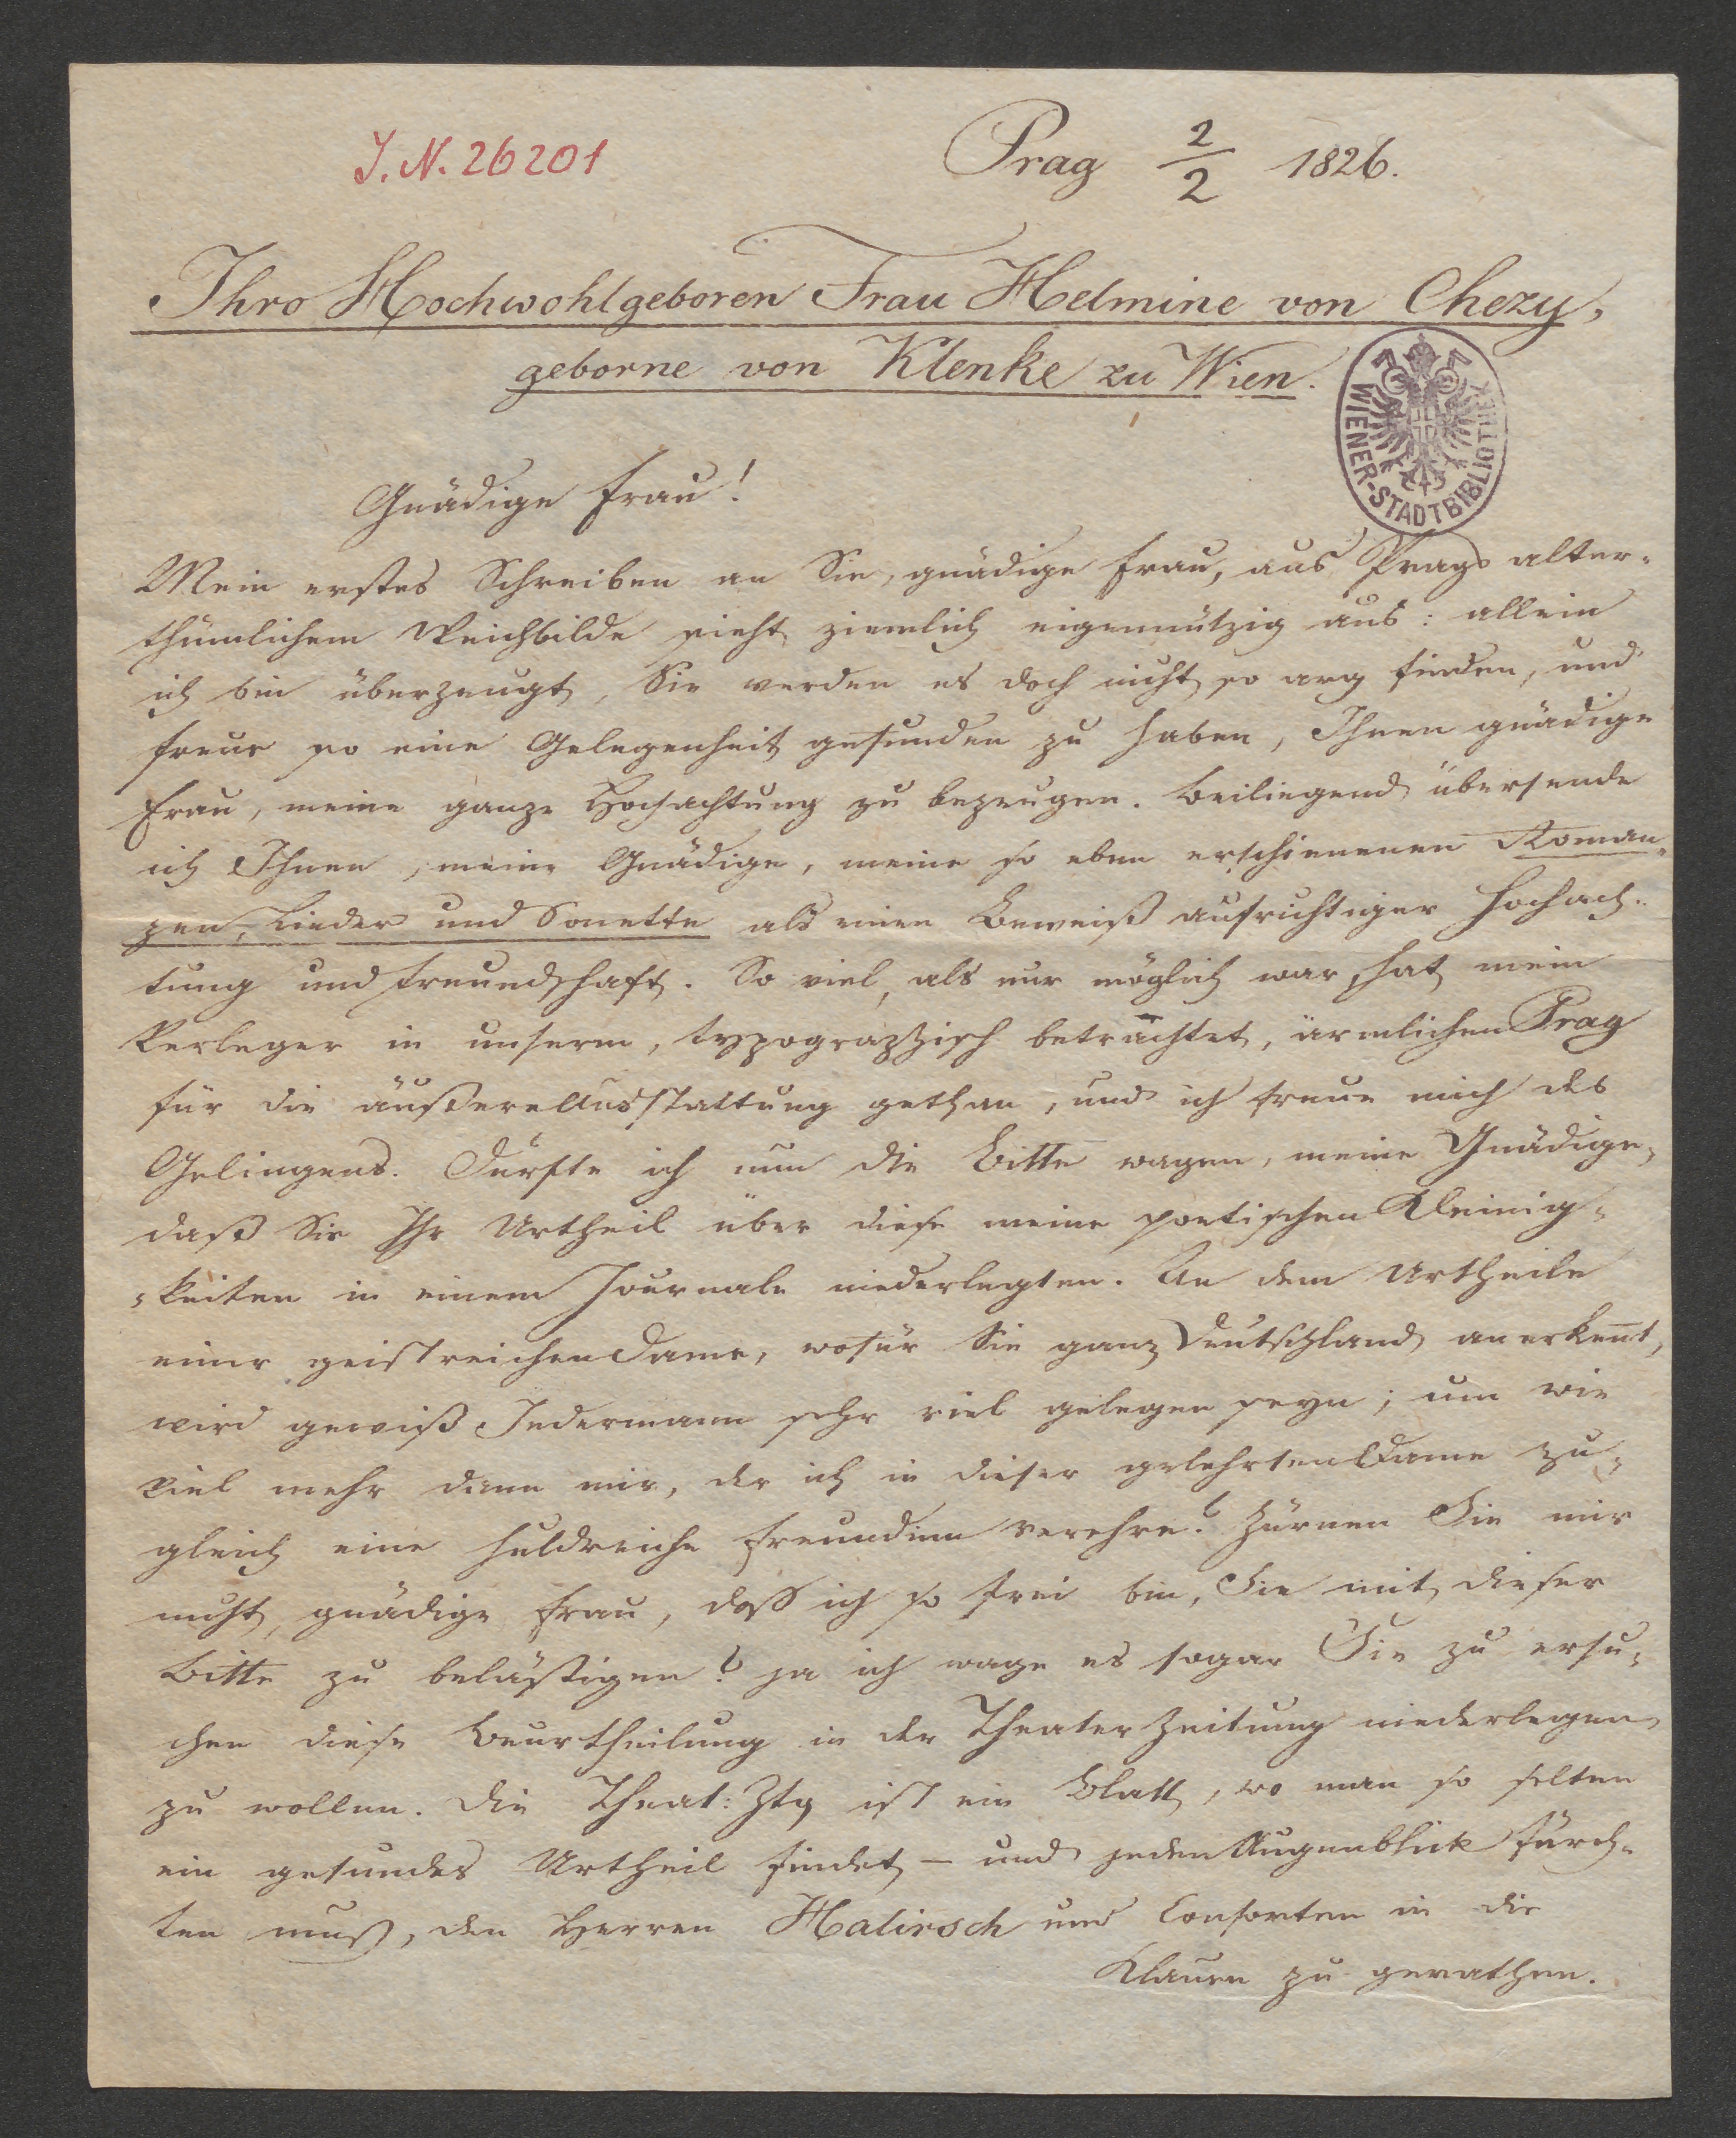 J. N. 26201
Prag 2/2 1826.
Ihro Hochwohlgeboren Frau Helmine von Chezy,
geborne von Klenke zu Wien.
WIENER-STADTBIBLIOTHEK
Gnädige Frau!
Mein erstes Schreiben an Sie, gnädige Frau, aus Prags alter-
thümlichem Weichbilde sieht ziemlich eigennützig aus: allein
ich bin überzeugt, Sie werden es doch nicht so arg finden, und
freue so eine Gelegenheit gefunden zu haben, Ihnen gnädige
Frau, meine ganze Hochachtung zu bezeugen. Beiliegend übersende
ich Ihnen, meine Gnädige, meine so eben erschienenen Roman-
zen, Lieder und Sonette als einen Beweiß aufrichtiger Hochach-
tung und Freundschaft. So viel, als nur möglich war, hat mein
Verleger in unserm, typographisch betrachtet, ärmlichen Prag
für die äußere Ausstattung gethan, und ich freue mich des
Gelingens. Dürfte ich nun die Bitte wagen, meine Gnädige,
daß Sie Ihr Urtheil über diese meine poetischen Kleinig-
-keiten in einem Journale niederlegten. An dem Urtheile
einer geistreichen Dame, wofür Sie ganz Deutschland anerkeñt,
wird gewiß Jedermann sehr viel gelegen seyn; um wie
viel mehr dann mir, der ich in dieser gelehrten Dame zu-
gleich eine huldreiche Freundinn verehre? Zürnen Sie mir
nicht, gnädige Frau, daß ich so frei bin, Sie mit dieser
Bitte zu belästigen? ja ich wage es sogar Sie zu ersu-
chen diese Beurtheilung in der Theater Zeitung niederlegen
zu wollen. Die Theat: Ztg ist ein Blatt, wo man so selten
ein gesundes Urtheil findet – und jeden Augenblick fürch-
ten muß, den Herren Halirsch und Consorten in die
Klauen zu gerathen.